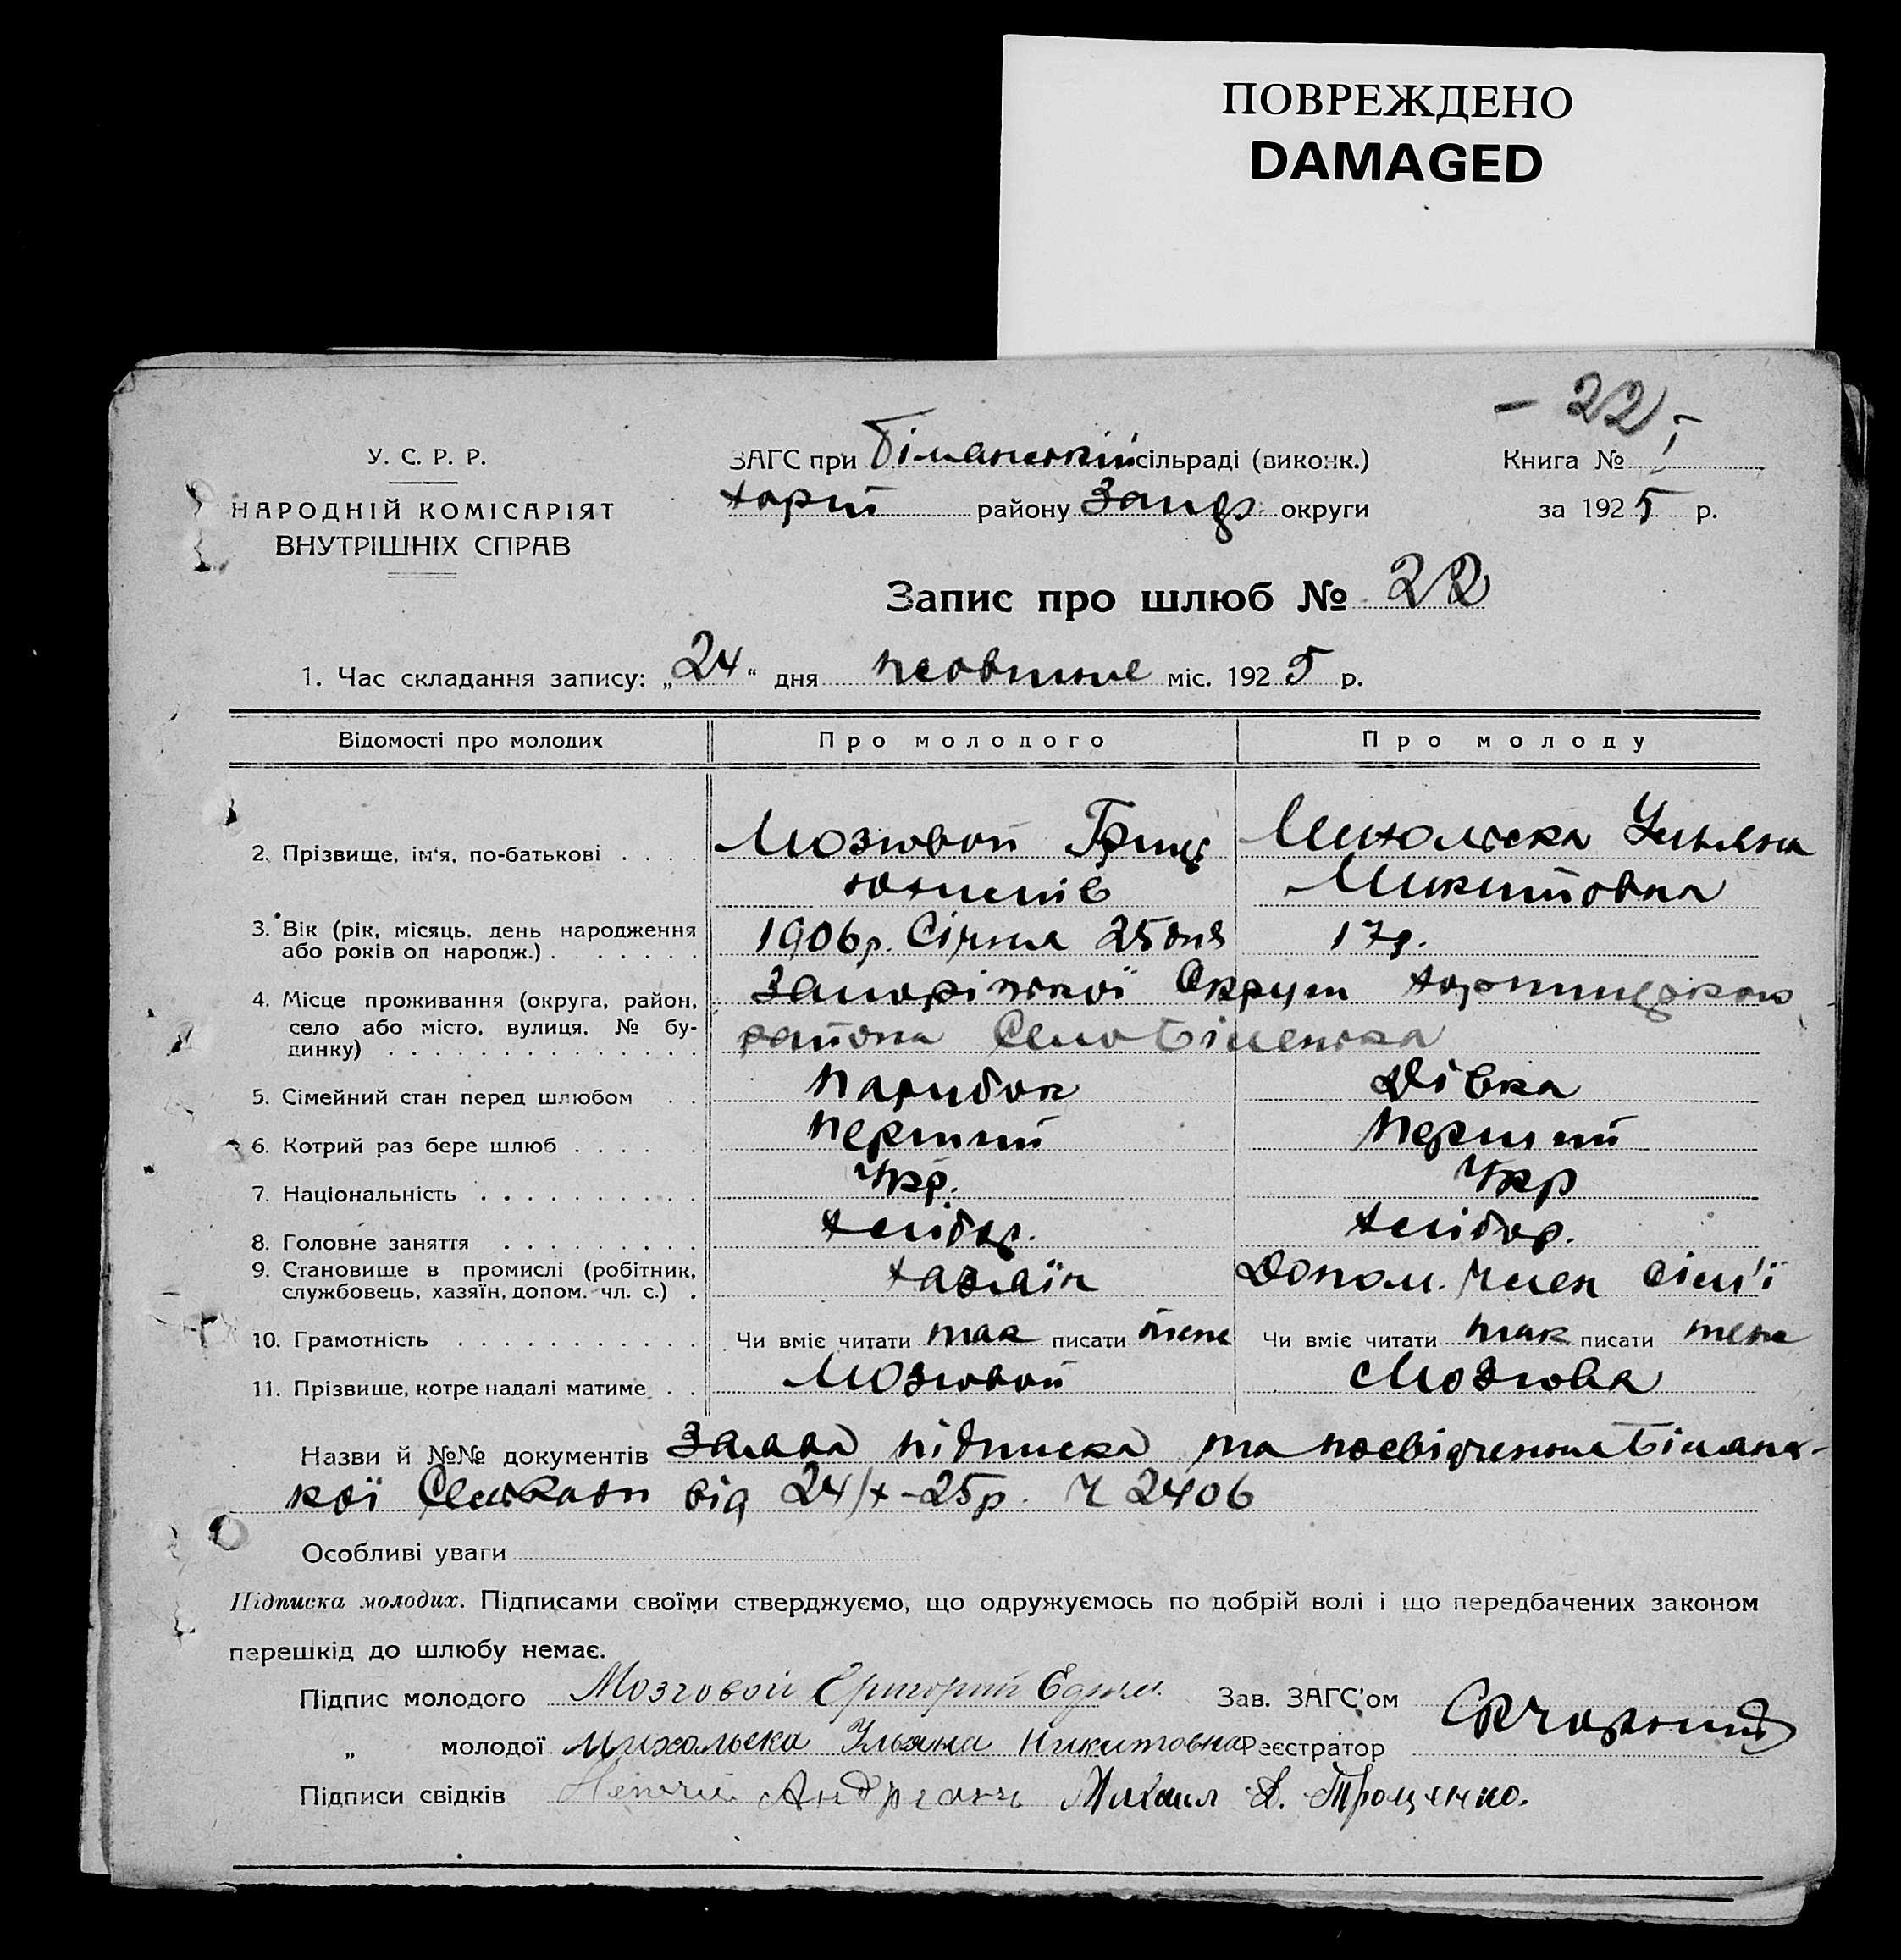 ПОВРЕЖДЕНО
DAMAGED
- 22
У. С. Р. Р.
НАРОДНІЙ КОМІСАРІЯТ
ВНУТРІШНІХ СПРАВ
ЗАГС при Біманській сільраді (виконк.)
району округи
Книга № I
за 1925 р.
Запис про шлюб № 22
1. Час складання запису: „24“ дня жовтне міс. 1925 р.
Відомості про молодих
Про молодого
Про молоду
2. Прізвище, ім'я, по-батькові
Мозговой Гриць
Михольска Ульяна
Микитовна
3. Вік (рік, місяць, день народження або років од народж.)
1906р. Січня 25 дня
17р.
4. Місце проживання (округа, район, село або місто, вулиця, № будинку)
Запоріжкої Округи
района Село Біменка
5. Сімейний стан перед шлюбом
Парубок
Дівка
6. Котрий раз бере шлюб
Перший
Перший
7. Національність
Укр.
Укр
8. Головне заняття
Хлібор.
Хлібор.
9. Становище в промислі (робітник, службовець, хазяїн, допом. чл. с.)
Хазяїн
Допом. член сім'ї
10. Грамотність
Чи вміє читати так писати теж
Чи вміє читати так писати теж
11. Прізвище, котре надалі матиме
Мозговой
Мозгова
Назви й №№ документів Заява підписка та посвідчення Біманс-
кої від 24/X-25р. Ч 2406
Особливі уваги
Підписка молодих. Підписами своїми стверджуємо, що одружуємось по добрій волі і що передбачених законом
перешкід до шлюбу немає.
Підпис молодого Мозговой Григорий
Зав. ЗАГС'ом
„ молодої Михольска Ульяна Никитовна
Реєстратор
Підписи свідків Михаил А. Трощенко.